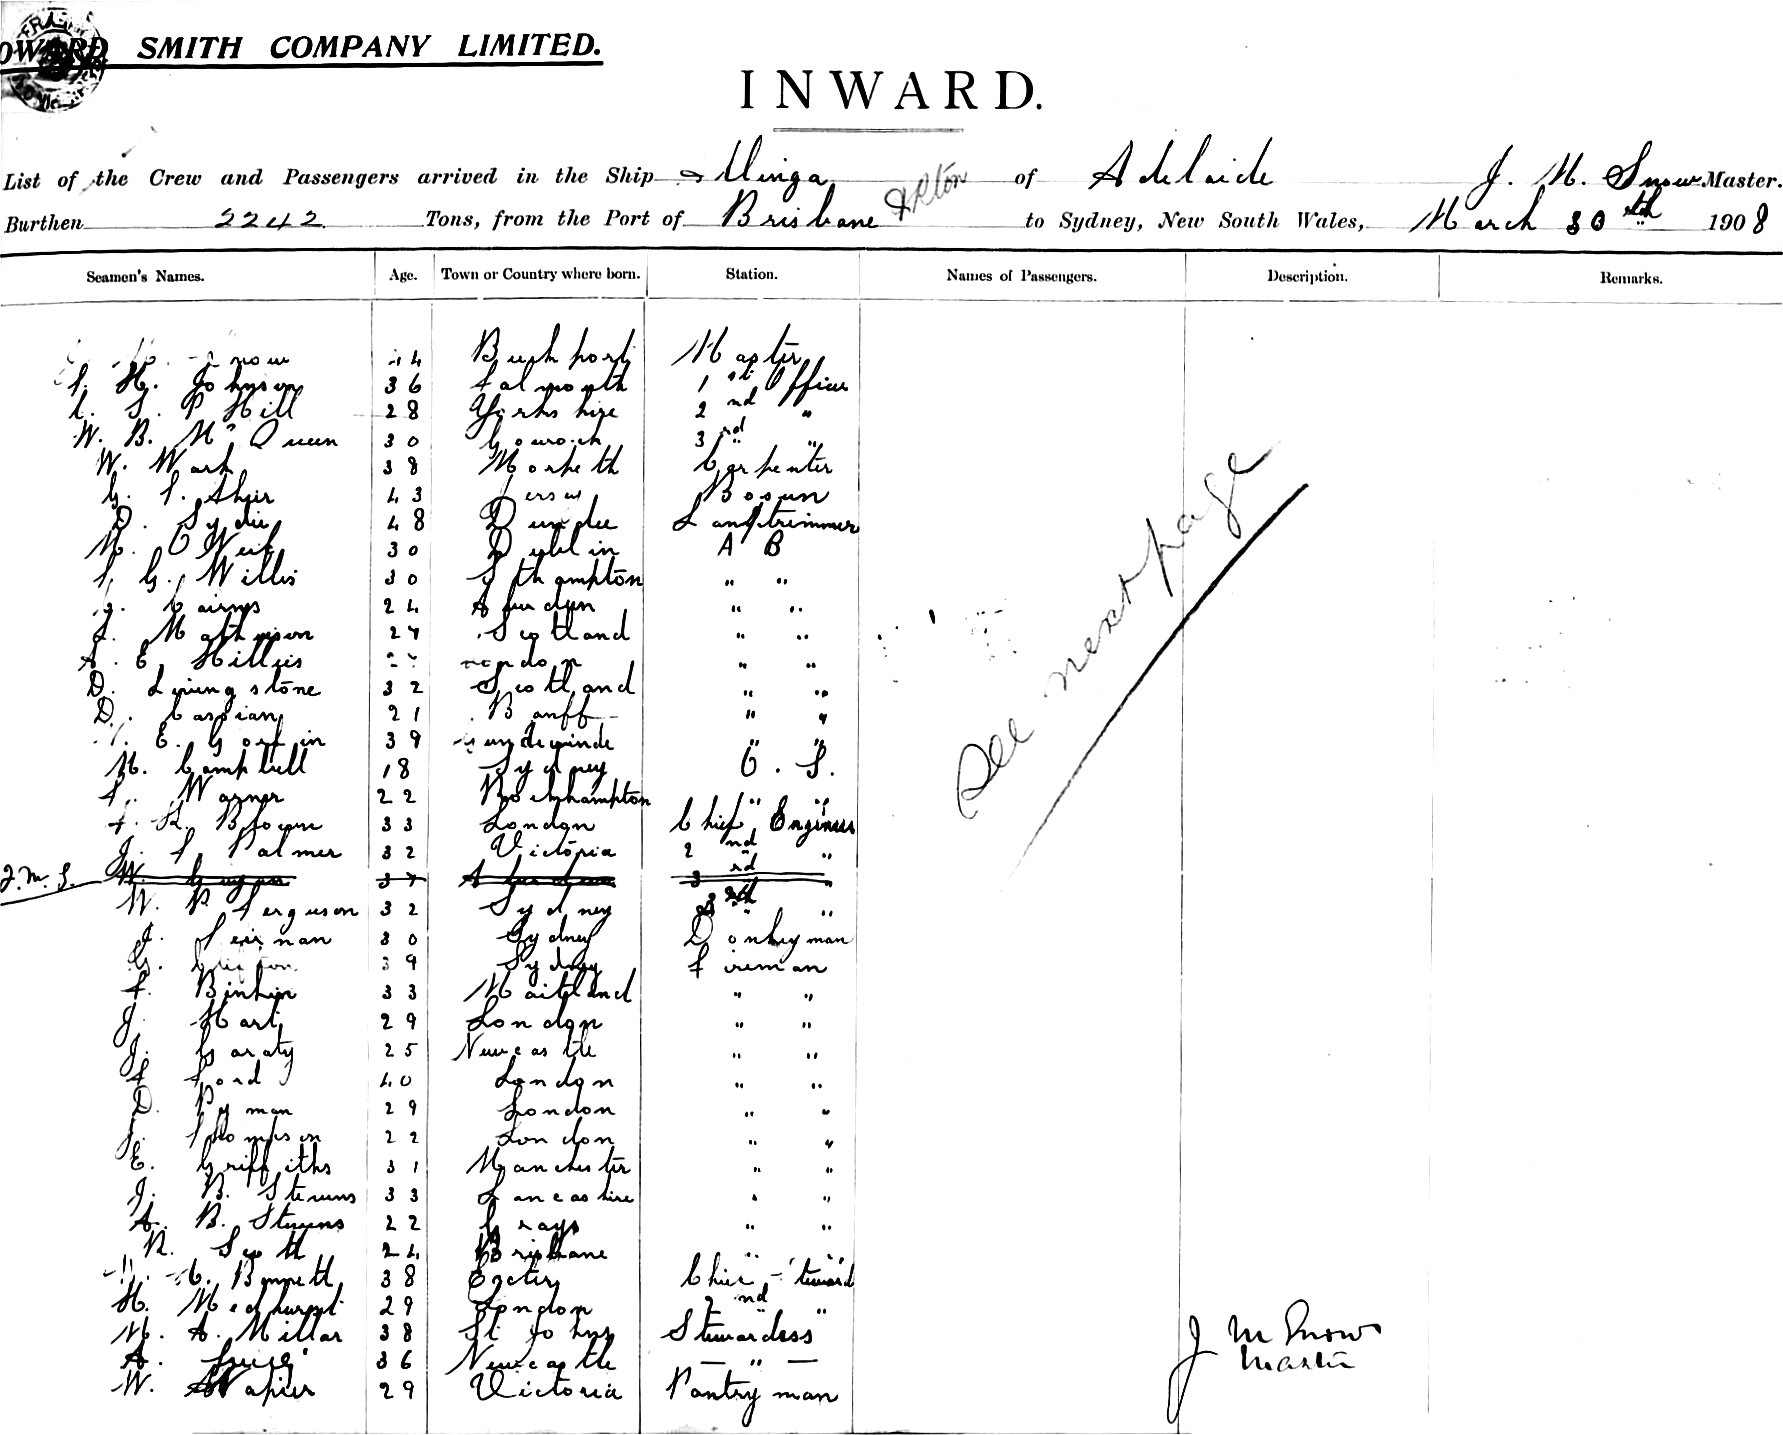 OWARD SMITH COMPANY LIMITED.
INWARD.
List of the Crew and Passengers arrived in the Ship Minga of Adelaide J. M. Snow Master.
Burthen 2242 Tons, from the Port of Brisbane to Sydney, New South Wales, March 30th 1908
Seamen's Names. Age. Town or Country where born. Station. Names of Passengers. Description. Remarks.
Snow Master
H. Johnson 36 Falmouth 1st Officer
S. P Hill 28 Yorkshire 2nd "
W. B. Mc Queen 30 Gourock 3rd " "
W. Wark 38 Morpeth Carpenter
43 Jersey Bosun
D. Sydie 48 Dundee Lamptrimmer
M. O'Neil 30 Dublin A B
G. Willis 30 Sthampton " "
J. Cairns 24 Aberdeen " "
J. Mathieson 27 Scotland " "
A. E. Hillies London " "
D. Livingstone 32 Scotland " "
D. Cassian 21 Banff " "
E. 39 " "
M. Campbell 18 Sydney O. S.
F. Warner 22 Rockhampton " "
F. R. Brown 33 London Chief Engineer
J. F. Palmer 32 Victoria 2nd "
J.M.S. W. 37 Aberdeen 3rd "
W. R. Ferguson 32 Sydney 3rd "
J. 30 Sydney Donkeyman
G. 39 Sydney Fireman
F. Binkin 33 Maitland " "
J. Hart 29 London " "
J. Garaty 25 Newcastle " "
F. Ford 40 London " "
D. Pyman 29 London " "
Thompson 22 London " "
E. Griffiths 31 Manchester " "
J. B. Stevens 33 Lancashire " "
A. B. Stevens 22 Grays " "
R. Scott 24 Brisbane " "
Bennett 38 Exeter Chief Steward
H. Medhurst 29 London 2nd "
M. A. Millar 38 St Johns Stewardess
A. 36 Newcastle — " —
W. Napier 29 Victoria Pantryman
See next page
J M Snow
Master